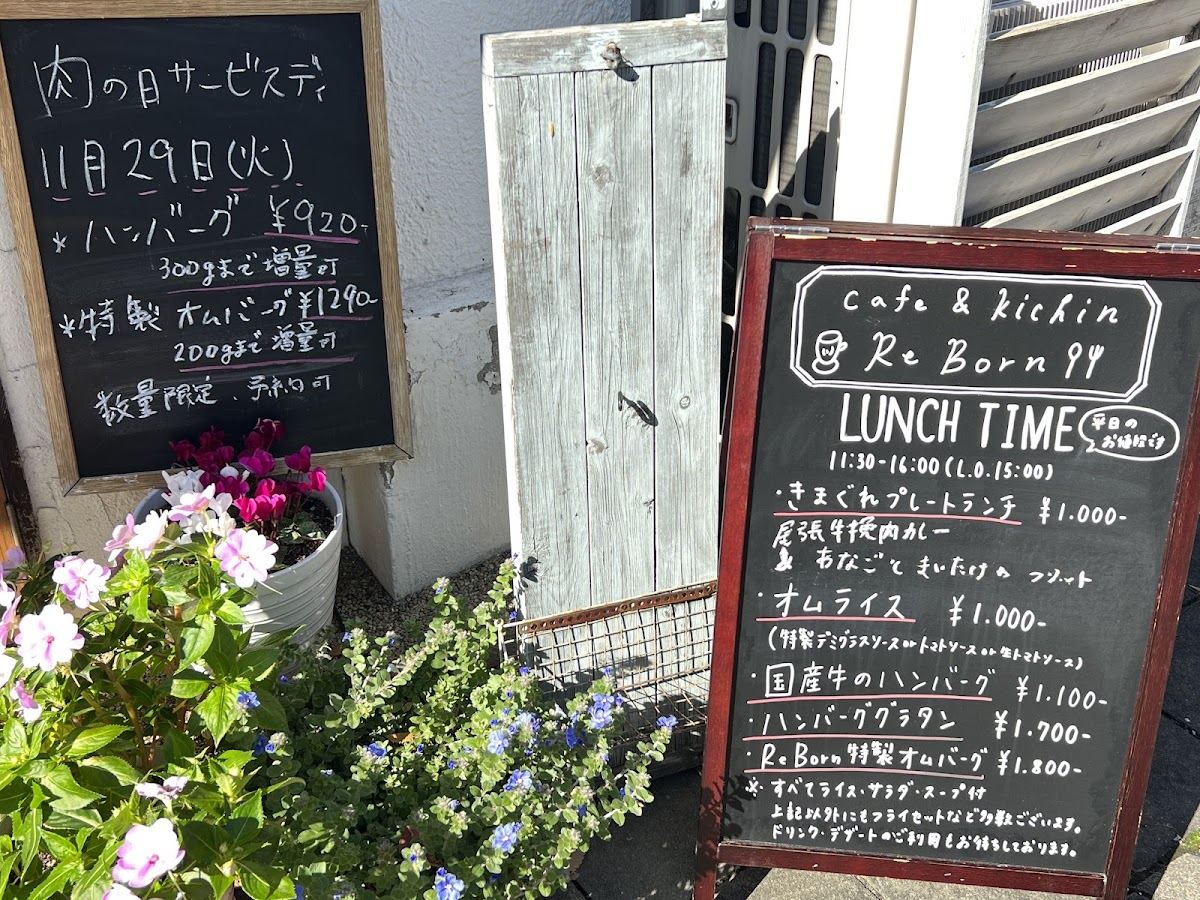 肉の日サービスディ
11月29日(火)
*ハンバーグ ¥920-
300gまで増量可
*特製オムバーグ¥1290-
200gまで増量可
数量限定、予約可
cafe & kichin
Re Born 94
LUNCH TIME
平日の
お値段です
11:30-16:00(L.O.15:00)
・きまぐれプレートランチ ¥1.000-
尾張牛挽肉カレー
& あなごとまいたけの リゾット
・オムライス ¥1.000-
(特製デミグラスソースorトマトソースor生トマトソース)
・国産牛のハンバーグ ¥1.100-
・ハンバーググラタン ¥1.700-
・ReBorn特製オムバーグ ¥1.800-
※・すべてライス・サラダ・スープ付
上記以外にもフライセットなど多数ございます。
ドリンク・デザートのご利用もお待ちしております。